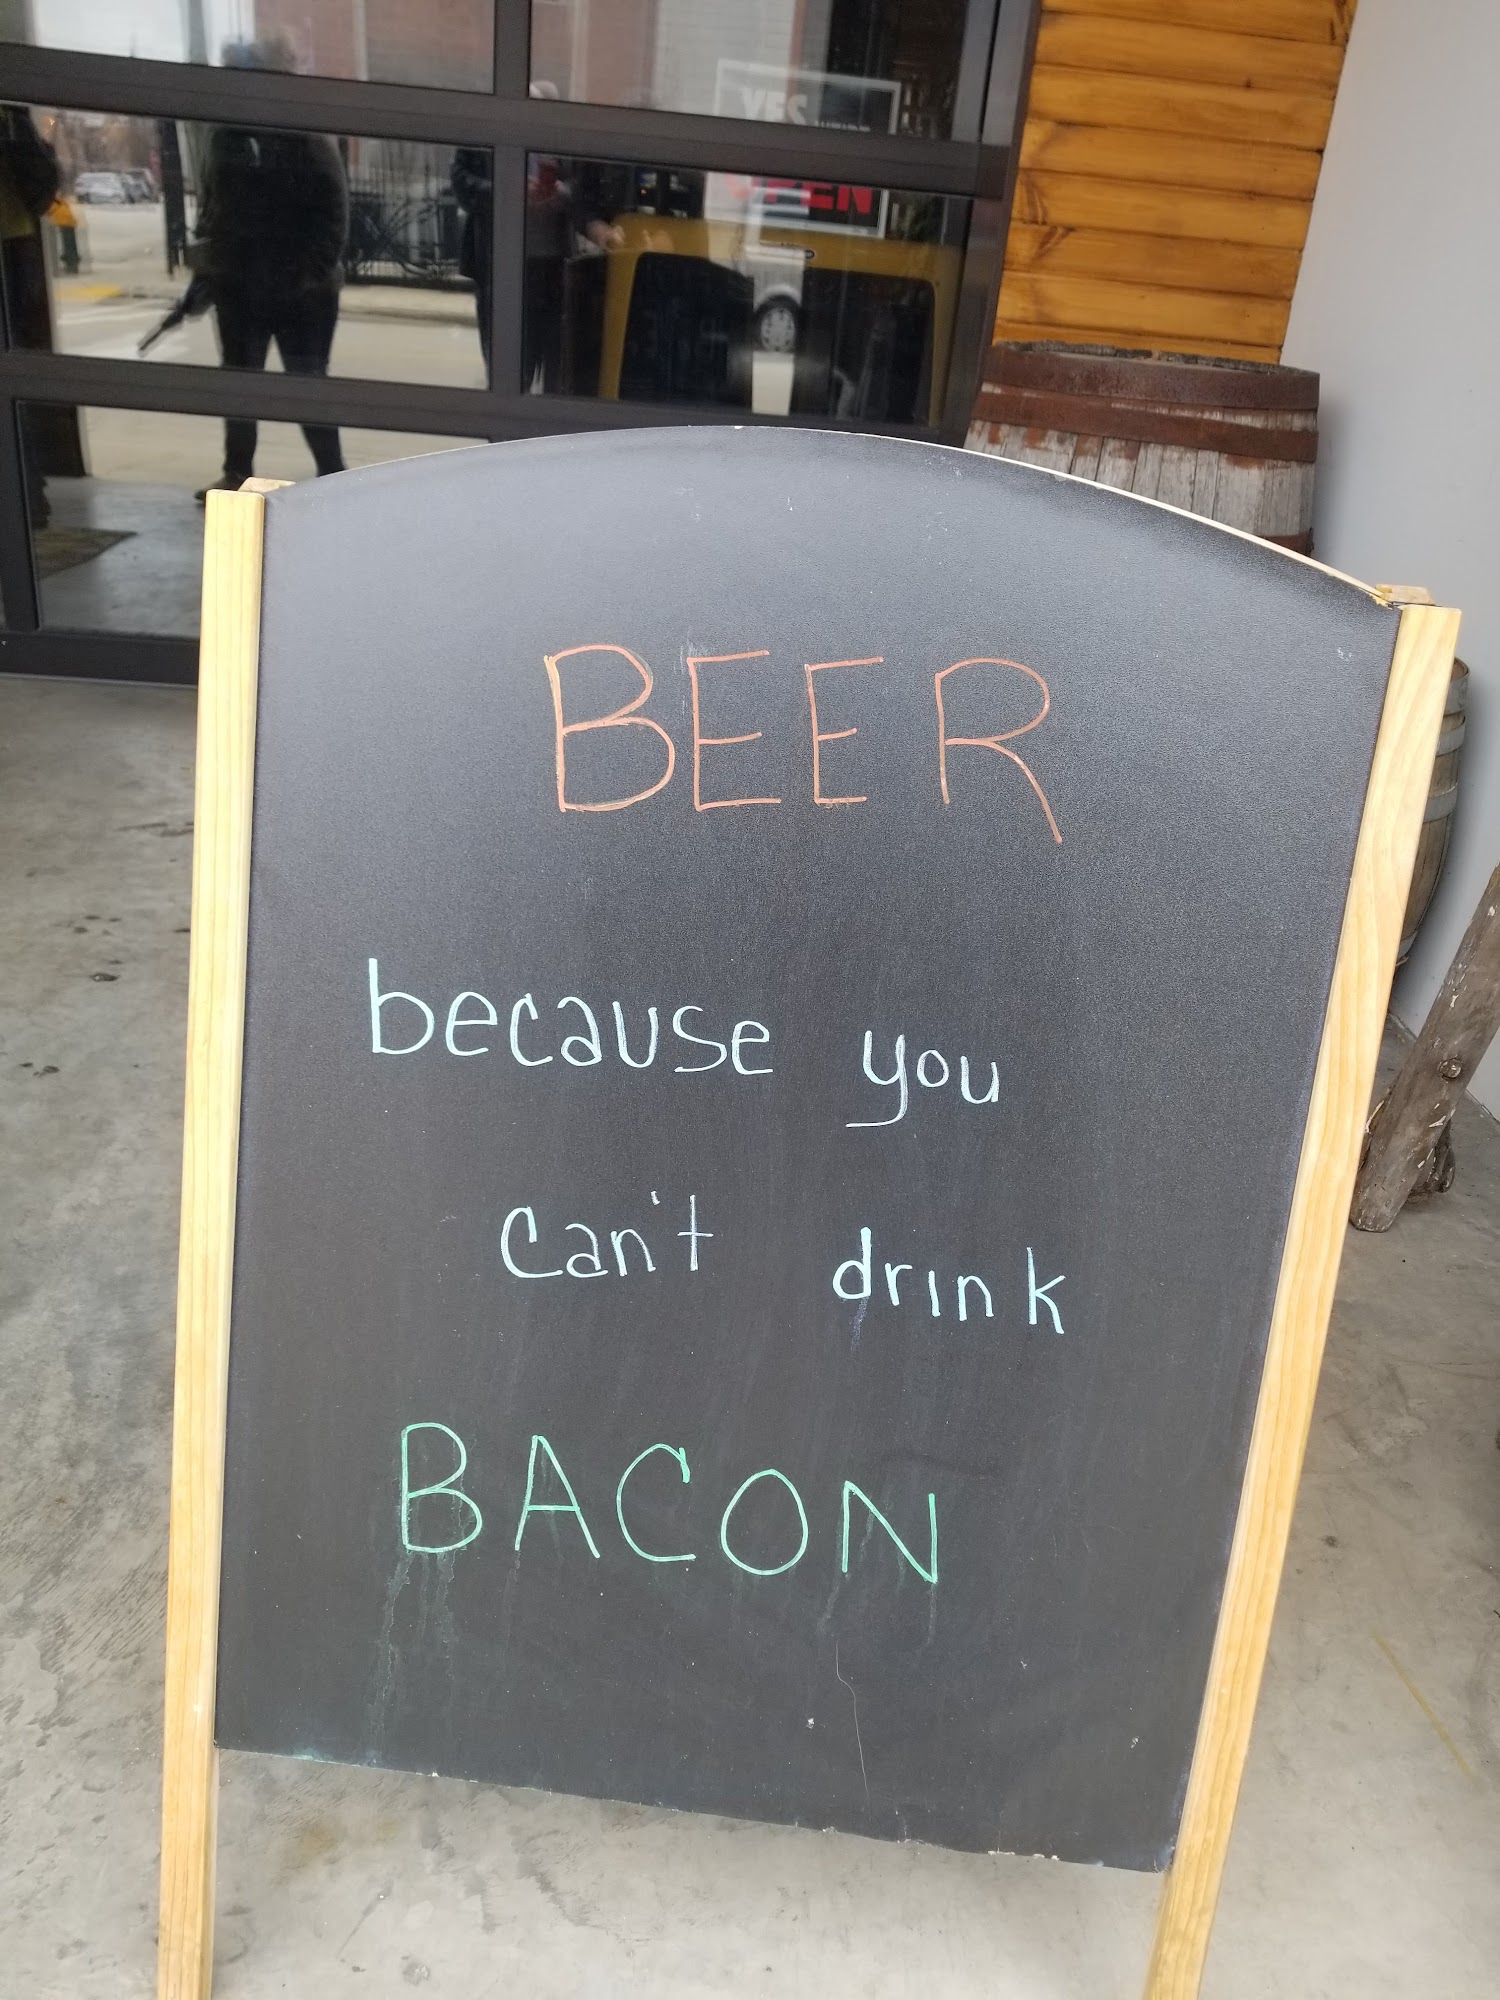 YES
OPEN
BEER
because you
can't drink
BACON